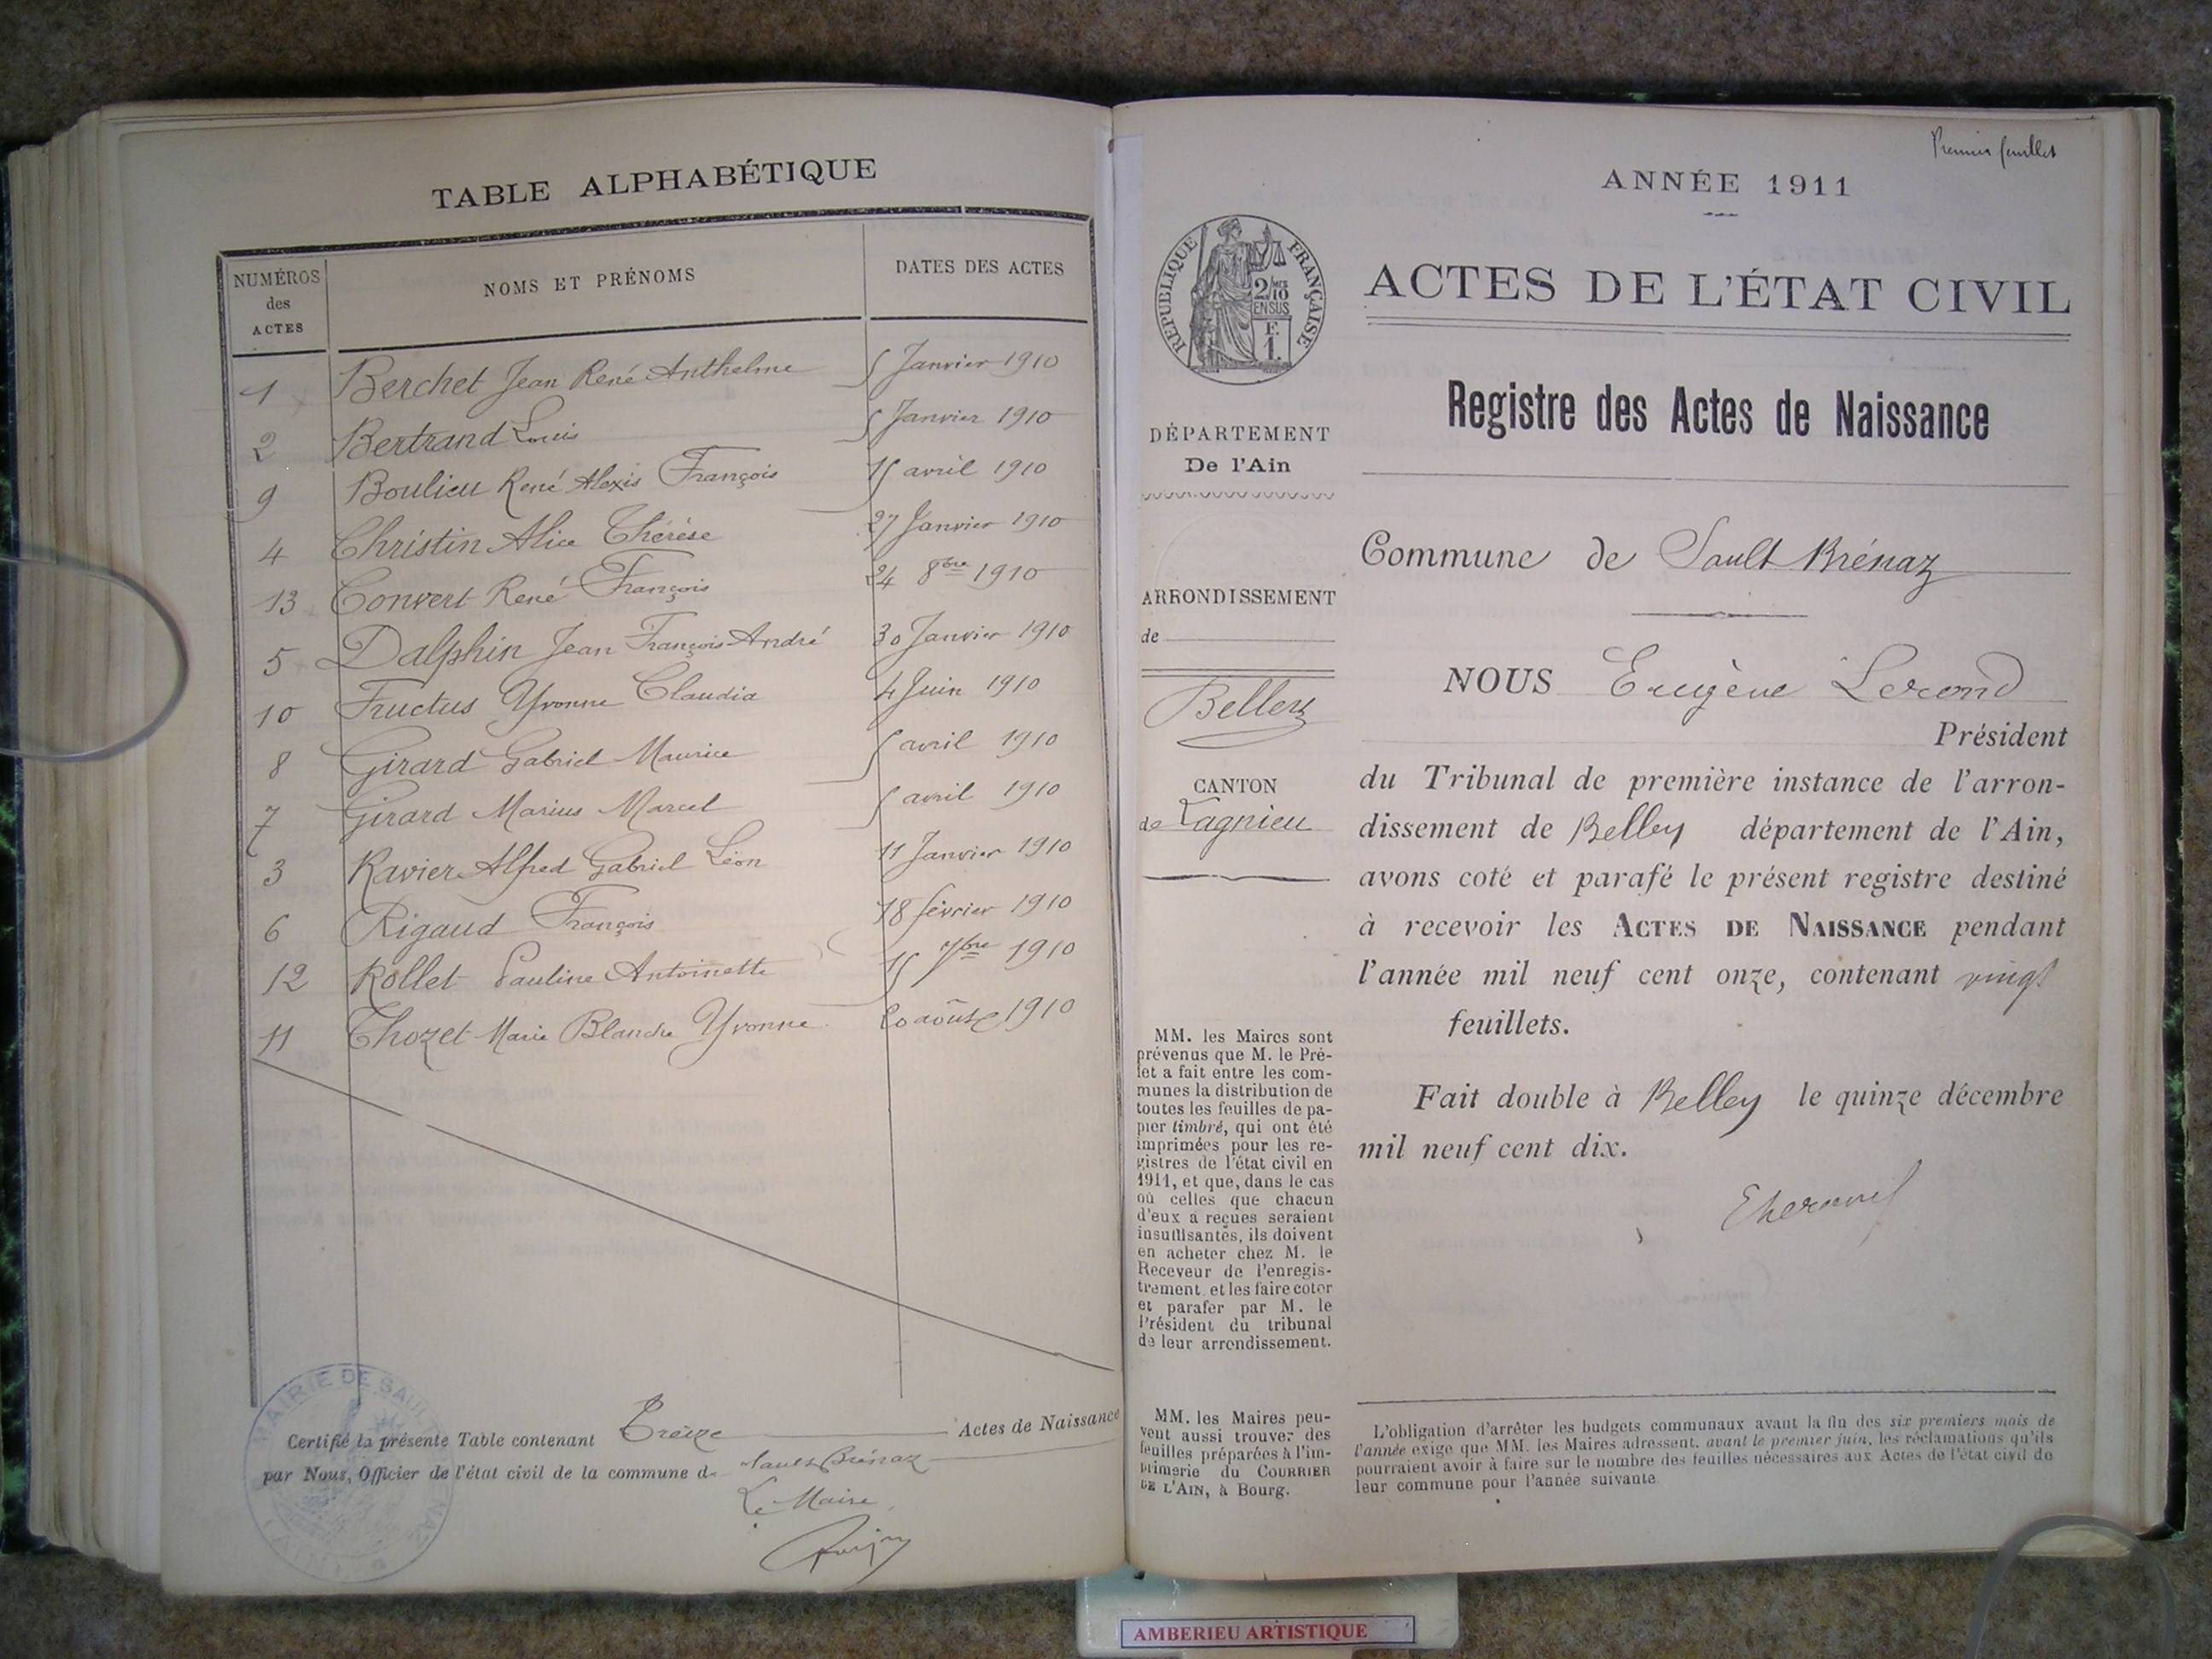 TABLE ALPHABÉTIQUE
NUMÉROS
des
ACTES
NOMS ET PRÉNOMS
DATES DES ACTES
1 Berchet Jean René Anthelme 5 Janvier 1910
2 Bertrand Louis 5 Janvier 1910
9 Boulieu René Alexis François 15 avril 1910
4 Christin Alice Thérèse 27 Janvier 1910
13 Convert René François 24 8bre 1910
5 Dalphin Jean François André 30 Janvier 1910
10 Fructus Yvonne Claudia 4 Juin 1910
8 Girard Gabriel Maurice 5 avril 1910
7 Girard Marius Marcel 5 avril 1910
3 Ravier Alfred Gabriel Léon 11 Janvier 1910
6 Rigaud François 18 février 1910
12 Rollet Pauline Antoinette 15 7bre 1910
11 Thozet Marie Blanche Yvonne 20 août 1910
Certifié la présente Table contenant Treize Actes de Naissance
par Nous, Officier de l'état civil de la commune de Sault Brénaz
Le Maire
MAIRIE DE SAULT BRÉNAZ
Premier feuillet
ANNÉE 1911
RÉPUBLIQUE FRANÇAISE
2/10
EN SUS
F.
1.
ACTES DE L'ÉTAT CIVIL
Registre des Actes de Naissance
DÉPARTEMENT
De l'Ain
ARRONDISSEMENT
de
Belley
CANTON
de Lagnieu
Commune de Sault Brénaz
NOUS Eugène Lerond
Président
du Tribunal de première instance de l'arron-
dissement de Belley département de l'Ain,
avons coté et parafé le présent registre destiné
à recevoir les ACTES DE NAISSANCE pendant
l'année mil neuf cent onze, contenant vingt
feuillets.
Fait double à Belley le quinze décembre
mil neuf cent dix.
MM. les Maires sont
prévenus que M. le Pré-
fet a fait entre les com-
munes la distribution de
toutes les feuilles de pa-
pier timbré, qui ont été
imprimées pour les re-
gistres de l'état civil en
1911, et que, dans le cas
où celles que chacun
d'eux a reçues seraient
insuffisantes, ils doivent
en acheter chez M. le
Receveur de l'enregis-
trement, et les faire coter
et parafer par M. le
Président du tribunal
de leur arrondissement.
MM. les Maires peu-
vent aussi trouver des
feuilles préparées à l'im-
primerie du COURRIER
DE L'AIN, à Bourg.
L'obligation d'arrêter les budgets communaux avant la fin des six premiers mois de
l'année exige que MM. les Maires adressent, avant le premier juin, les réclamations qu'ils
pourraient avoir à faire sur le nombre des feuilles nécessaires aux Actes de l'état civil de
leur commune pour l'année suivante.
AMBERIEU ARTISTIQUE